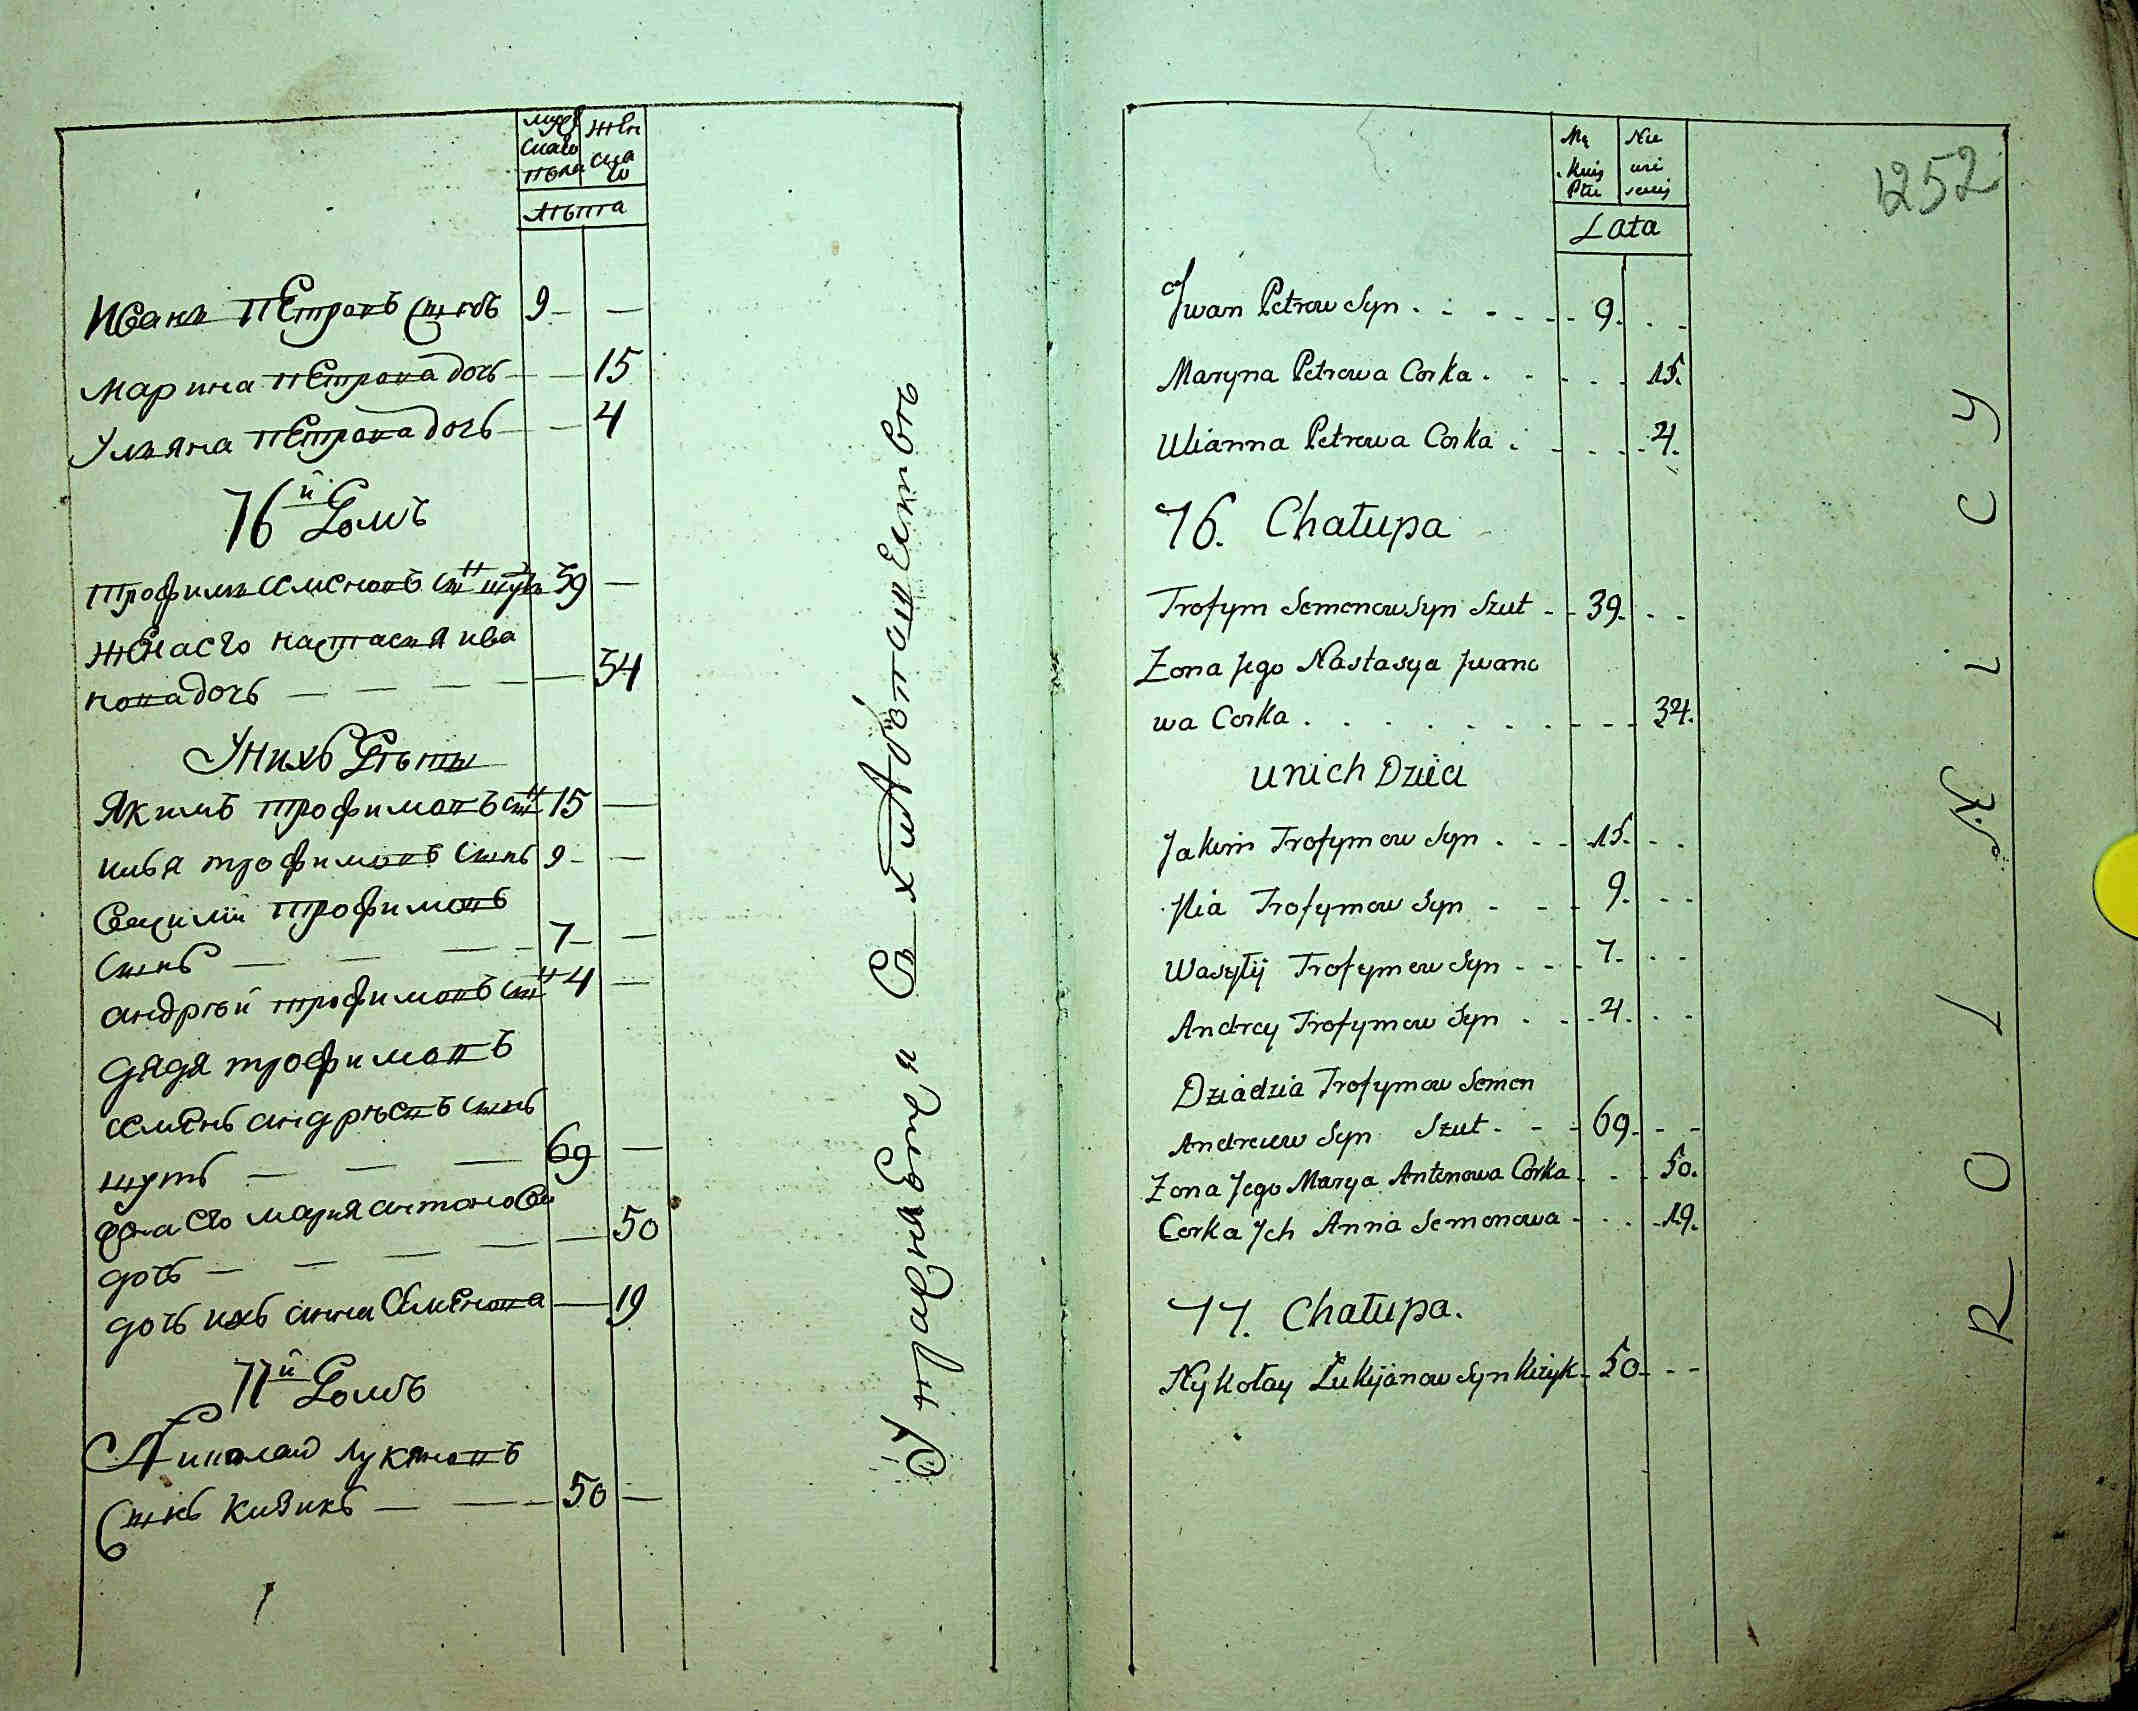 Мужскаго пола
Женскаго
Лѣта
Иванъ Петровъ сынъ 9 —
Марина Петрова дочь — 15
Ульяна Петрова дочь — 4
76й Домъ
Трофимъ Семеновъ сынъ Шутъ 39 —
Жена его Настасья Ива
нова дочь — 34
У нихъ Дѣти
Якимъ Трофимовъ сынъ 15 —
Илья Трофимовъ сынъ 9 —
Василій Трофимовъ
сынъ — 7 —
Андрѣй Трофимовъ сынъ 4 —
Дядя Трофимовъ
Семенъ Андрѣевъ сынъ
Шутъ — 69 —
Жена его Марья Антонова
дочь — 50
Дочь ихъ Анна Семенова — 19
77й Домъ
Николай Лукяновъ
Сынъ Кизикъ — 50 —
1252
Męzkiej Płci
Lata
Jwan Petrow Syn 9.
Maryna Petrowa Corka 15.
Ulianna Petrowa Corka 4.
76. Chałupa
Trofym Semenow Syn Szut 39.
Zona Jego Nastasya Jwano
wa Corka 34.
u nich Dzieci
Jakim Trofymow Syn 15.
Jlia Trofymow Syn 9.
Wasyłij Trofymow Syn 7.
Andrey Trofymow Syn 4.
Dziadzia Trofymow Semen
Andreiew Syn Szut 69.
Zona Jego Marya Antonowa Corka 50.
Corka Jch Anna Semenowa 19.
77. Chałupa.
Nykołay Łukijanow Syn Kizyk 50.
ROLNICY